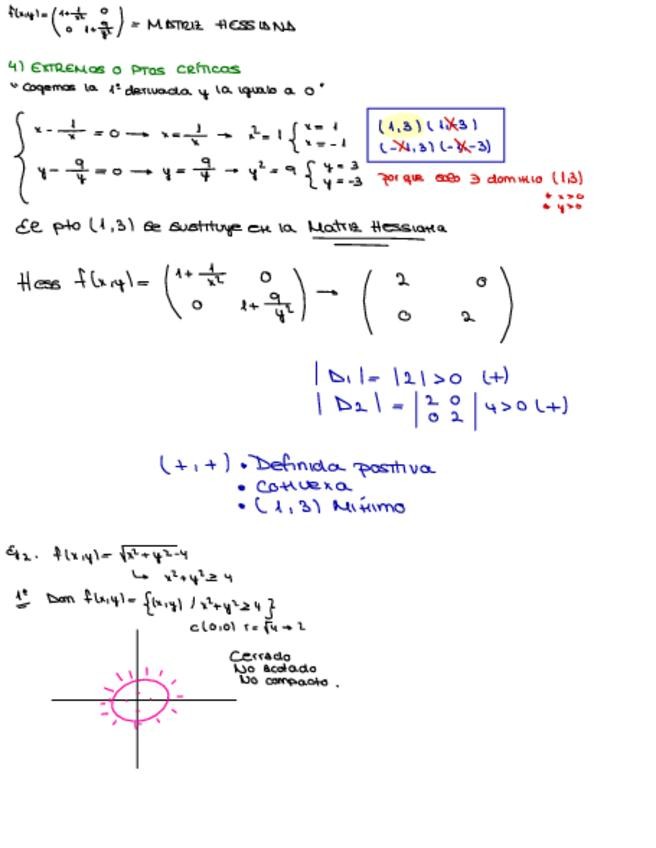 f(x,y) = ( 1+1/x² 0 ; 0 1+9/y² ) = MATRIZ HESSIANA
4) EXTREMOS O PTOS CRÍTICOS
"Cogemos la 1ª derivada y la igualo a 0"
{ x - 1/x = 0 → x = 1/x → x² = 1 { x = 1 ; x = -1
y - 9/y = 0 → y = 9/y → y² = 9 { y = 3 ; y = -3
(1,3) (1,-3)
(-1,3) (-1,-3)
porque solo ∃ dominio (1,3)
* x>0
* y>0
El pto (1,3) se sustituye en la Matriz Hessiana
Hess f(x,y) = ( 1+1/x² 0 ; 0 1+9/y² ) → ( 2 0 ; 0 2 )
|D1| = |2| > 0 (+)
|D2| = | 2 0 ; 0 2 | 4 > 0 (+)
(+,+) • Definida positiva
• Convexa
• (1,3) Mínimo
Ej2. f(x,y) = √x²+y²-4
↳ x²+y² ≥ 4
1º Dom f(x,y) = {(x,y) / x²+y² ≥ 4}
C(0,0) r = √4 → 2
Cerrado
No acotado
No compacto.